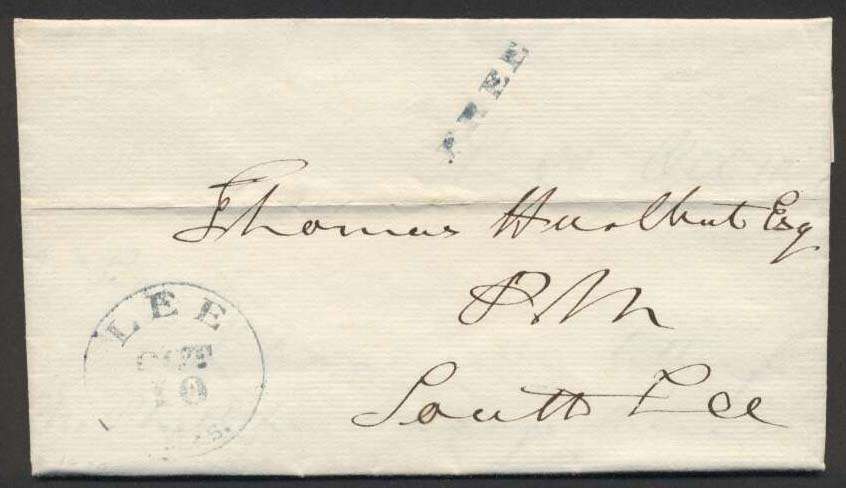 FREE
Thomas Hurlbut Esq
P.M
South Lee
LEE
OCT
10